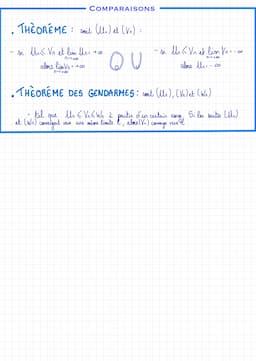 COMPARAISONS
. THÉORÈME : soit (Un) et (Vn) :
- si Un ≤ Vn et lim Un = +∞ OU - si Un ≤ Vn et lim Vn = -∞
n→+∞ n→+∞
alors lim Vn = +∞ alors Un = -∞
n→+∞
. THÉORÈME DES GENDARMES : soit (Un), (Vn) et (Wn)
- tel que Un ≤ Vn ≤ Wn à partir d'un certain rang. Si les suites (Un)
et (Wn) convergent vers une même limite ℓ, alors (Vn) converge vers ℓ